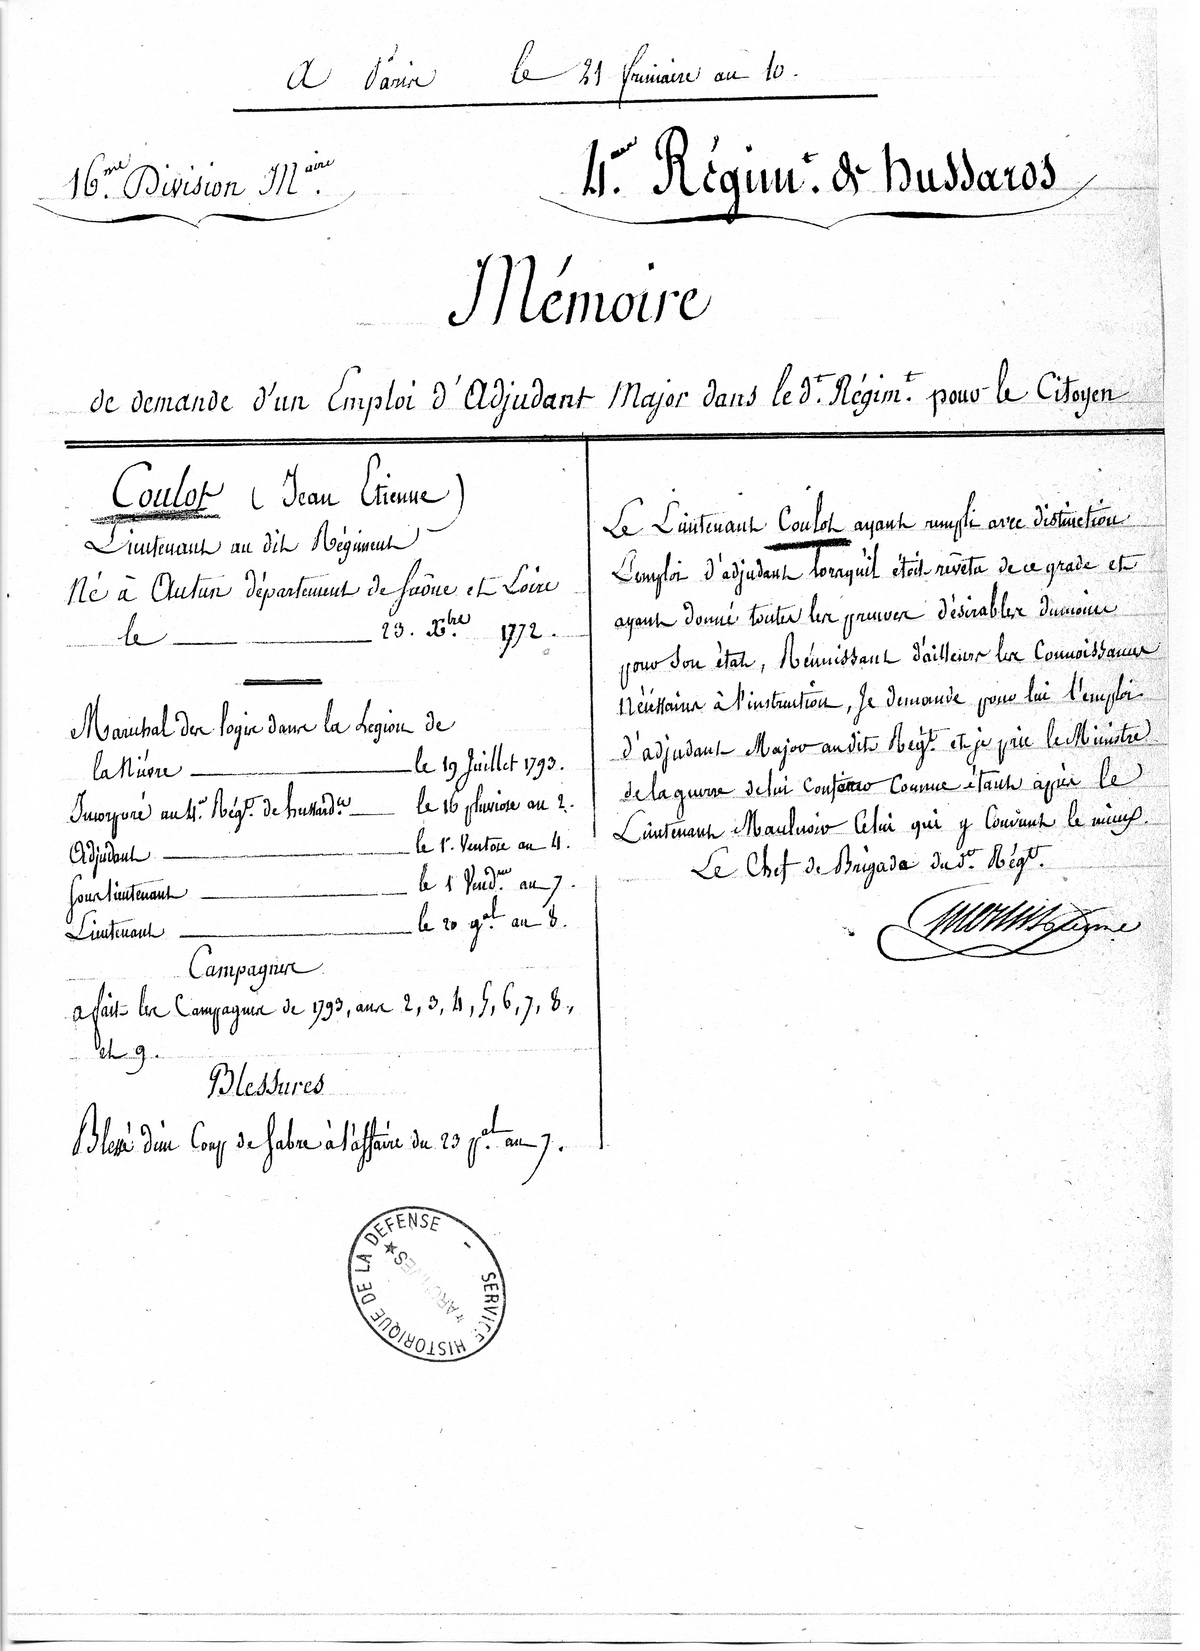 A Paris le 21 frimaire an 10.
16.me Division M.aire
4.me Régim.t de hussards
Mémoire
de demande d'un Emploi d'Adjudant Major dans le d.t Régim.t pour le Citoyen
Coulot (Jean Etienne)
Lieutenant au dit Régiment
Né à Autun département de Saône et Loire
le 23. Xbre 1772.
Maréchal des logis dans la Légion de
la Niévre le 19 Juillet 1793.
Incorporé au 4.me Rég.t de hussards le 16 pluviose an 2.
Adjudant le 1.er Ventose an 4.
Sous lieutenant le 1 Vend.re an 7.
Lieutenant le 20 g.al an 8.
Campagnes
a fait les Campagnes de 1793, ans 2, 3, 4, 5, 6, 7, 8,
et 9.
Blessures
Blessé d'un Coup de Sabre à l'affaire du 23 p.al an 7.
Le Lieutenant Coulot ayant rempli avec distinction
l'emploi d'adjudant lorsqu'il étoit revêtu de ce grade et
ayant donné toutes les preuves désirables
pour Son état, Réunissant d'ailleurs les Connoissances
Nécéssaires à l'instruction, Je demande pour lui l'emploi
d'adjudant Major au dit Rég.t et je prie le Ministre
de la guerre de lui Comme étant après le
Lieutenant Celui qui y Convient le mieux.
Le Chef de Brigade du d.t Rég.t
SERVICE HISTORIQUE DE LA DEFENSE -
★ ARCHIVES ★